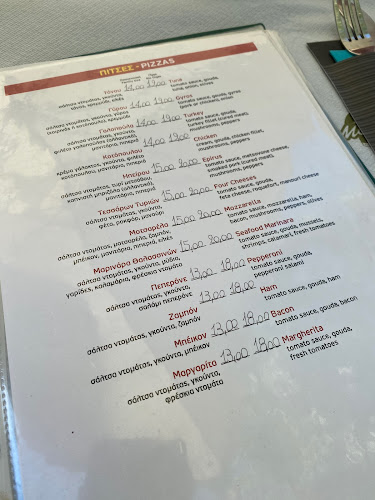 ΠΙΤΣΕΣ - PIZZAS
Τόνου 14,00 19,00 Tuna
σάλτσα ντομάτας, γκούντα, tomato sauce, gouda,
τόνος, κρεμμύδι, ελιές tuna, onion, olives
Γύρου 14,00 19,00 Gyros
σάλτσα ντομάτας, γκούντα, γύρος tomato sauce, gouda, gyros
χοιρινός ή κοτόπουλο, κρεμμύδι (pork or chicken), onion
Γαλοπούλα 14,00 19,00 Turkey
σάλτσα ντομάτας, γκούντα, tomato sauce, gouda,
φιλέτο γαλοπούλας (αλλαντικό), turkey fillet (cured meat)
μανιτάρια, πιπεριά mushrooms, peppers
Κοτόπουλου 14,00 19,00 Chicken
κρέμα γάλακτος, γκούντα, φιλέτο cream, gouda, chicken fillet,
κοτόπουλο, μανιτάρια, πιπεριά mushrooms, peppers
Ηπείρου 15,00 20,00 Epirus
σάλτσα ντομάτας, τυρί μετσοβόνε, tomato sauce, metsovone cheese,
καπνιστή μπριζόλα (αλλαντικό), smoked pork (cured meat),
μανιτάρια, πιπεριά mushrooms, peppers
Τεσσάρων Τυριών 15,00 20,00 Four Cheeses
σάλτσα ντομάτας, γκούντα, tomato sauce, gouda,
φέτα, ροκφόρ, μανούρι feta cheese, roquefort, manouri cheese
Μοτσαρέλα 15,00 20,00 Mozzarella
σάλτσα ντομάτας, μοτσαρέλα, ζαμπόν, tomato sauce, mozzarella, ham,
μπέικον, μανιτάρια, πιπεριά, ελιές bacon, mushrooms, peppers, olives
Μαρινάρα Θαλασσινών 15,00 20,00 Seafood Marinara
σάλτσα ντομάτας, γκούντα, μύδια, tomato sauce, gouda, mussels,
γαρίδες, καλαμάρια, φρέσκια ντομάτα shrimps, calamari, fresh tomatoes
Πεπερόνε 13,00 18,00 Pepperoni
σάλτσα ντομάτας, γκούντα, tomato sauce, gouda,
σαλάμι πεπερόνε pepperoni salami
Ζαμπόν 13,00 18,00 Ham
σάλτσα ντομάτας, γκούντα, ζαμπόν tomato sauce, gouda, ham
Μπέικον 13,00 18,00 Bacon
σάλτσα ντομάτας, γκούντα, μπέικον tomato sauce, gouda, bacon
Μαργαρίτα 13,00 18,00 Margherita
σάλτσα ντομάτας, γκούντα, tomato sauce, gouda,
φρέσκια ντομάτα fresh tomatoes